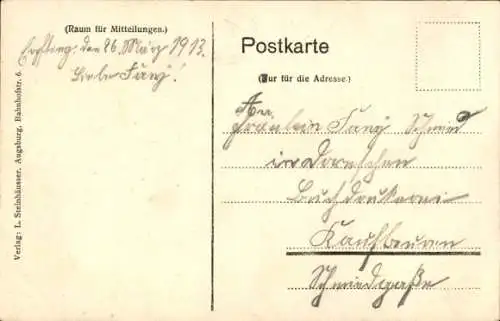 (Raum für Mitteilungen.)
den 26. März 1913.
Liebe Fany!
Verlag: L. Steinhäusser, Augsburg, Bahnhofstr. 6.
Postkarte
(Nur für die Adresse.)
An
Fräulein Fany Schmid
in Dornschen
Buchdruckerei
Kaufbeuren
Schmiedgasse